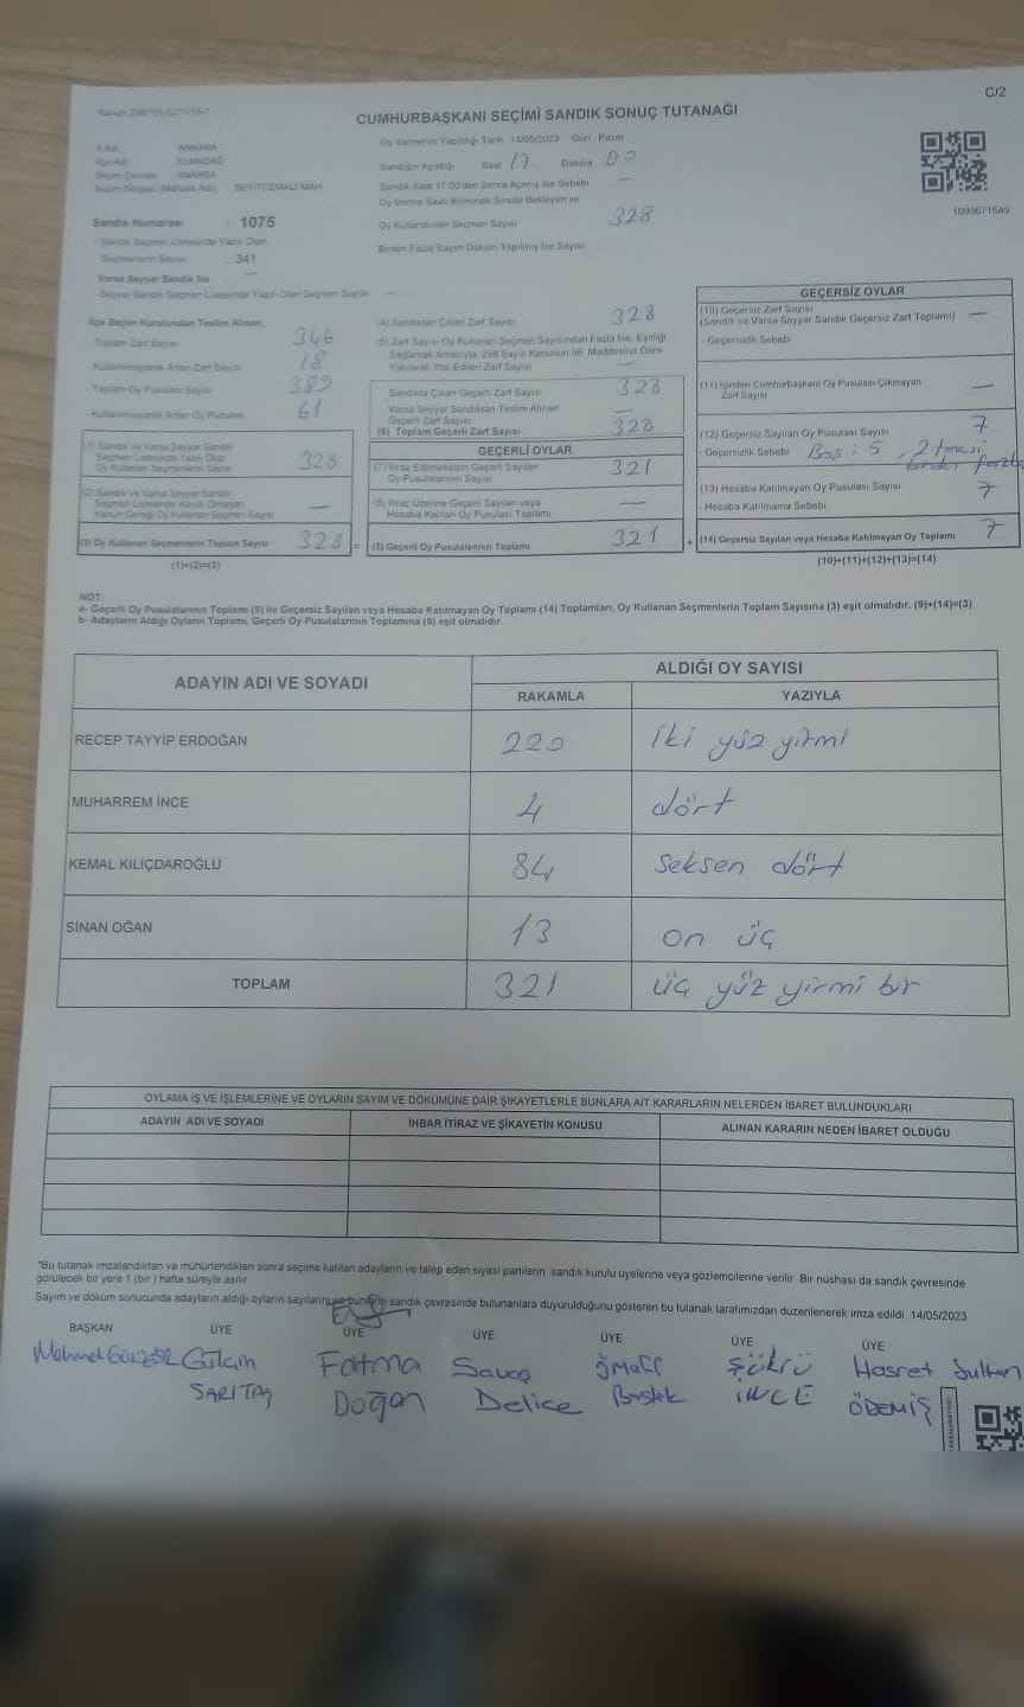 C/2
CUMHURBAŞKANI SEÇİMİ SANDIK SONUÇ TUTANAĞI
Oy Vermenin Yapıldığı Tarih 14/05/2023 Gün Pazar
ANKARA
Sandığın Açıldığı Saat 17 Dakika 00
ELMADAĞ
Sandık Saat 17:00'den Sonra Açılmış İse Sebebi —
Oy Kullanan Seçmen Sayısı 328
Sandık Numarası : 1075
Sandık Seçmen Listesinde Yazılı Olan
Seçmenlerin Sayısı : 341
Birden Fazla Sayım Döküm Yapılmış İse Sayısı
Varsa Seyyar Sandık No —
Seyyar Sandık Seçmen Listesinde Yazılı Olan Seçmen Sayısı —
İlçe Seçim Kurulundan Teslim Alınan;
Toplam Zarf Sayısı 346
Kullanılmayarak Artan Zarf Sayısı 18
Toplam Oy Pusulası Sayısı 389
Kullanılmayarak Artan Oy Pusulası 61
(1) Sandık ve Varsa Seyyar Sandık
Seçmen Listesinde Yazılı Olup
Oy Kullanan Seçmenlerin Sayısı 328
(2) Sandık ve Varsa Seyyar Sandık
Seçmen Listesinde Kayıtlı Olmayan
Kanun Gereği Oy Kullanan Seçmen Sayısı —
(3) Oy Kullanan Seçmenlerin Toplam Sayısı 328 =
(1)+(2)=(3)
(4) Sandıktan Çıkan Zarf Sayısı 328
(5) Zarf Sayısı Oy Kullanan Seçmen Sayısından Fazla İse, Eşitliği
Sağlamak Amacıyla, 298 Sayılı Kanunun 98. Maddesine Göre
Yakılarak Yok Edilen Zarf Sayısı —
Sandıkta Çıkan Geçerli Zarf Sayısı 328
Varsa Seyyar Sandıktan Teslim Alınan
Geçerli Zarf Sayısı —
(6) Toplam Geçerli Zarf Sayısı 328
GEÇERLİ OYLAR
(7) İtiraz Edilmeksizin Geçerli Sayılan
Oy Pusulalarının Sayısı 321
(8) İtiraz Üzerine Geçerli Sayılan veya
Hesaba Katılan Oy Pusulası Toplamı —
(9) Geçerli Oy Pusulalarının Toplamı 321 +
GEÇERSİZ OYLAR
(10) Geçersiz Zarf Sayısı
(Sandık ve Varsa Seyyar Sandık Geçersiz Zarf Toplamı) —
- Geçersizlik Sebebi
(11) İçinden Cumhurbaşkanı Oy Pusulası Çıkmayan
Zarf Sayısı —
(12) Geçersiz Sayılan Oy Pusulası Sayısı 7
- Geçersizlik Sebebi Boş: 5, 2 tanesi
birden fazla
(13) Hesaba Katılmayan Oy Pusulası Sayısı 7
- Hesaba Katılmama Sebebi
(14) Geçersiz Sayılan veya Hesaba Katılmayan Oy Toplamı 7
(10)+(11)+(12)+(13)=(14)
NOT:
a- Geçerli Oy Pusulalarının Toplamı (9) ile Geçersiz Sayılan veya Hesaba Katılmayan Oy Toplamı (14) Toplamları, Oy Kullanan Seçmenlerin Toplam Sayısına (3) eşit olmalıdır. (9)+(14)=(3)
b- Adayların Aldığı Oyların Toplamı, Geçerli Oy Pusulalarının Toplamına (9) eşit olmalıdır.
ADAYIN ADI VE SOYADI ALDIĞI OY SAYISI
RAKAMLA YAZIYLA
RECEP TAYYİP ERDOĞAN 220 iki yüz yirmi
MUHARREM İNCE 4 dört
KEMAL KILIÇDAROĞLU 84 seksen dört
SİNAN OĞAN 13 on üç
TOPLAM 321 üç yüz yirmi bir
OYLAMA İŞ VE İŞLEMLERİNE VE OYLARIN SAYIM VE DÖKÜMÜNE DAİR ŞİKAYETLERLE BUNLARA AİT KARARLARIN NELERDEN İBARET BULUNDUKLARI
ADAYIN ADI VE SOYADI İHBAR İTİRAZ VE ŞİKAYETİN KONUSU ALINAN KARARIN NEDEN İBARET OLDUĞU
"Bu tutanak imzalandıktan ve mühürlendikten sonra seçime katılan adayların ve talep eden siyasi partilerin sandık kurulu üyelerine veya gözlemcilerine verilir. Bir nüshası da sandık çevresinde
görülecek bir yere 1 (bir) hafta süreyle asılır.
Sayım ve döküm sonucunda adayların aldığı oyların sayılarını ve bunların sandık çevresinde bulunanlara duyurulduğunu gösteren bu tutanak tarafımızdan düzenlenerek imza edildi. 14/05/2023
BAŞKAN ÜYE ÜYE ÜYE ÜYE ÜYE ÜYE
Mehmet Gülçin Fatma Savaş Şükrü Hasret Sultan
SARITAŞ Doğan Delice İNCE ÖDEMİŞ